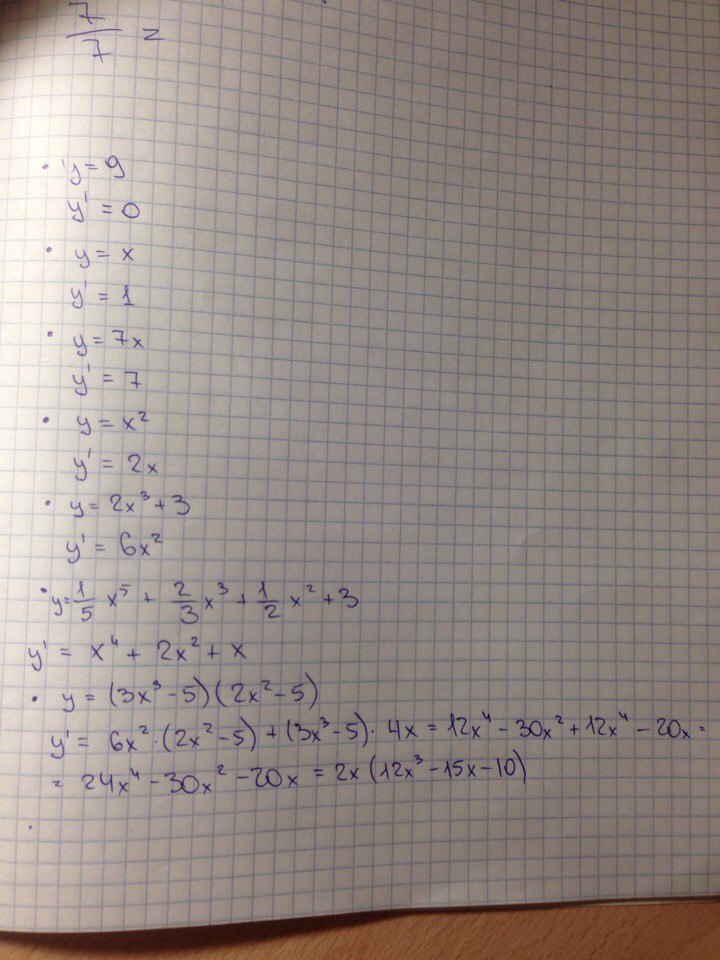 7/7 =
• y = 9
y' = 0
• y = x
y' = 1
• y = 7x
y' = 7
• y = x²
y' = 2x
• y = 2x³ + 3
y' = 6x²
• y = 1/5 x⁵ + 2/3 x³ + 1/2 x² + 3
y' = x⁴ + 2x² + x
• y = (3x³ - 5)(2x² - 5)
y' = 6x² · (2x² - 5) + (3x³ - 5) · 4x = 12x⁴ - 30x² + 12x⁴ - 20x =
= 24x⁴ - 30x² - 20x = 2x (12x³ - 15x - 10)
•